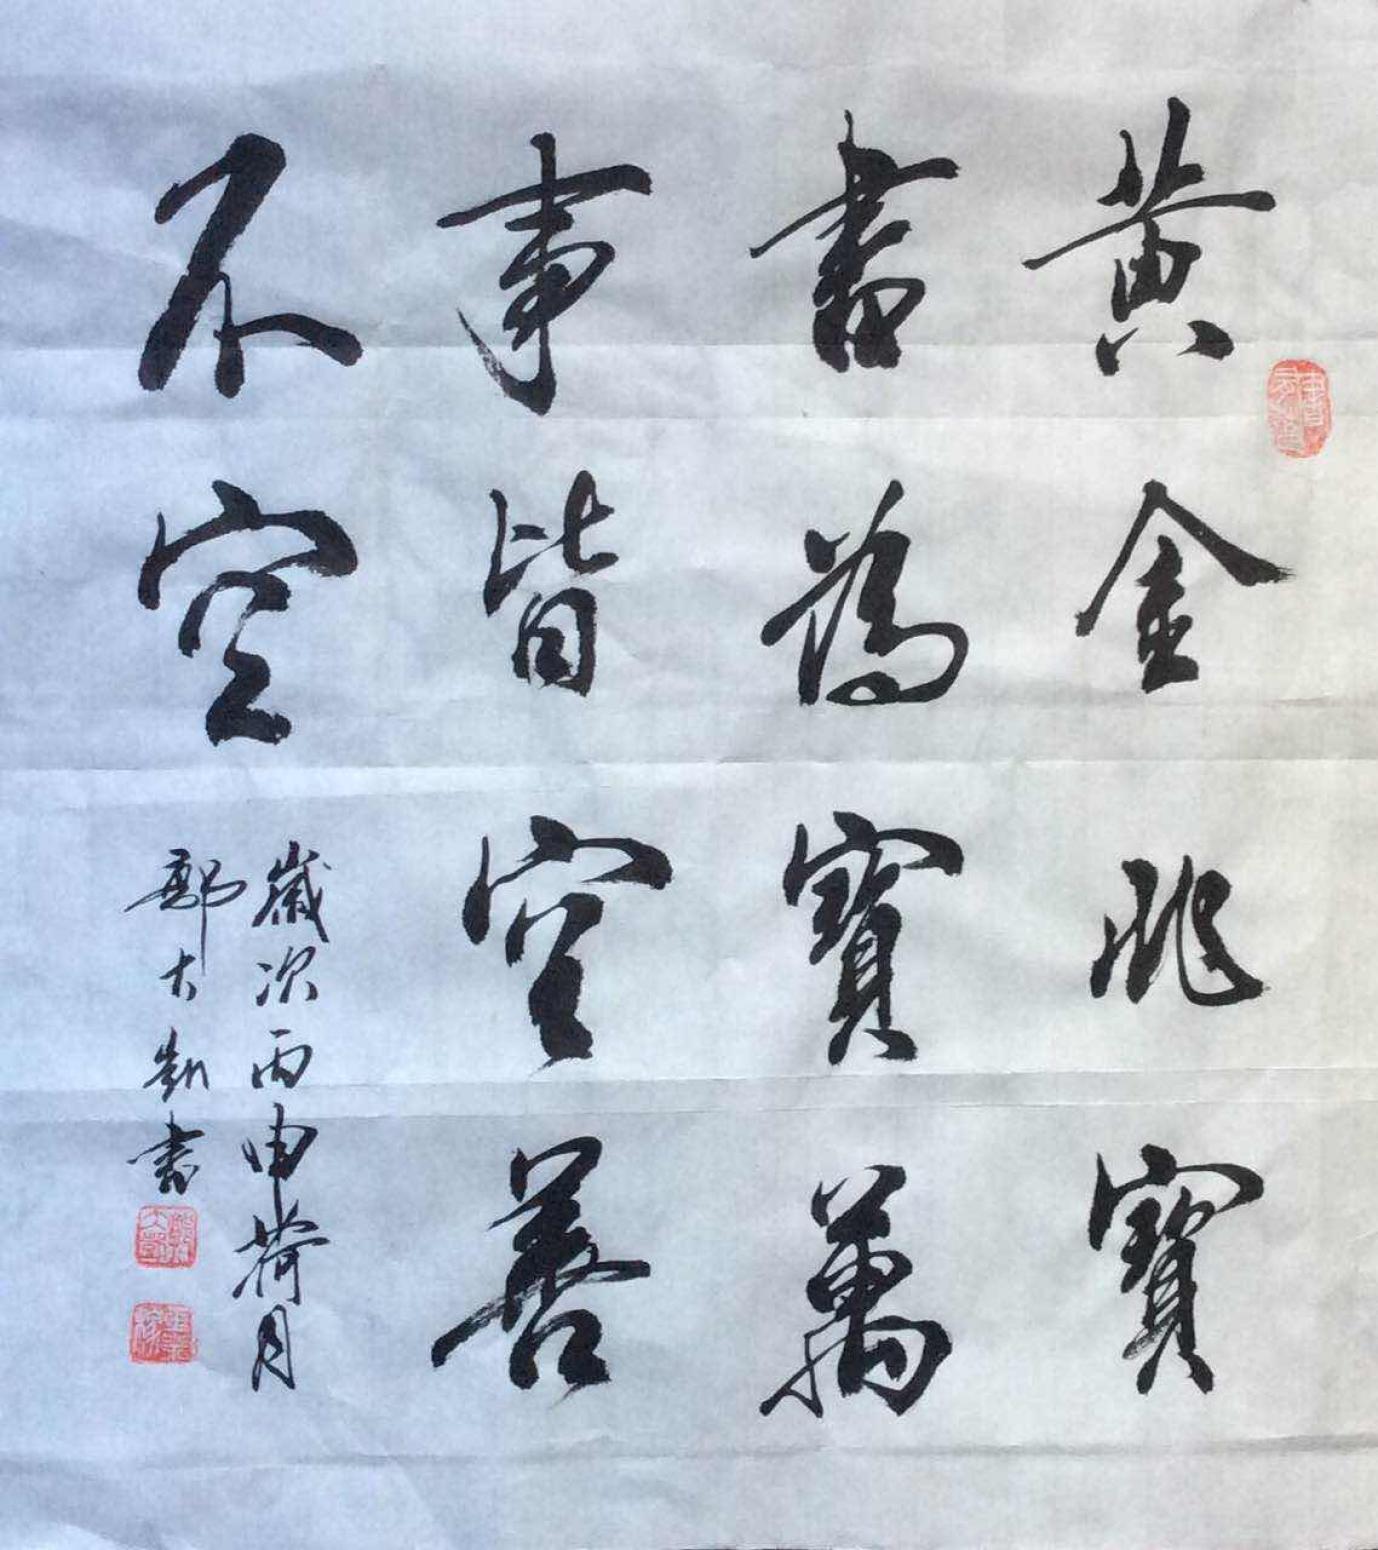 黄金非寶
書為寶萬
事皆空善
不空
歲次丙申荷月
鄭大凱書